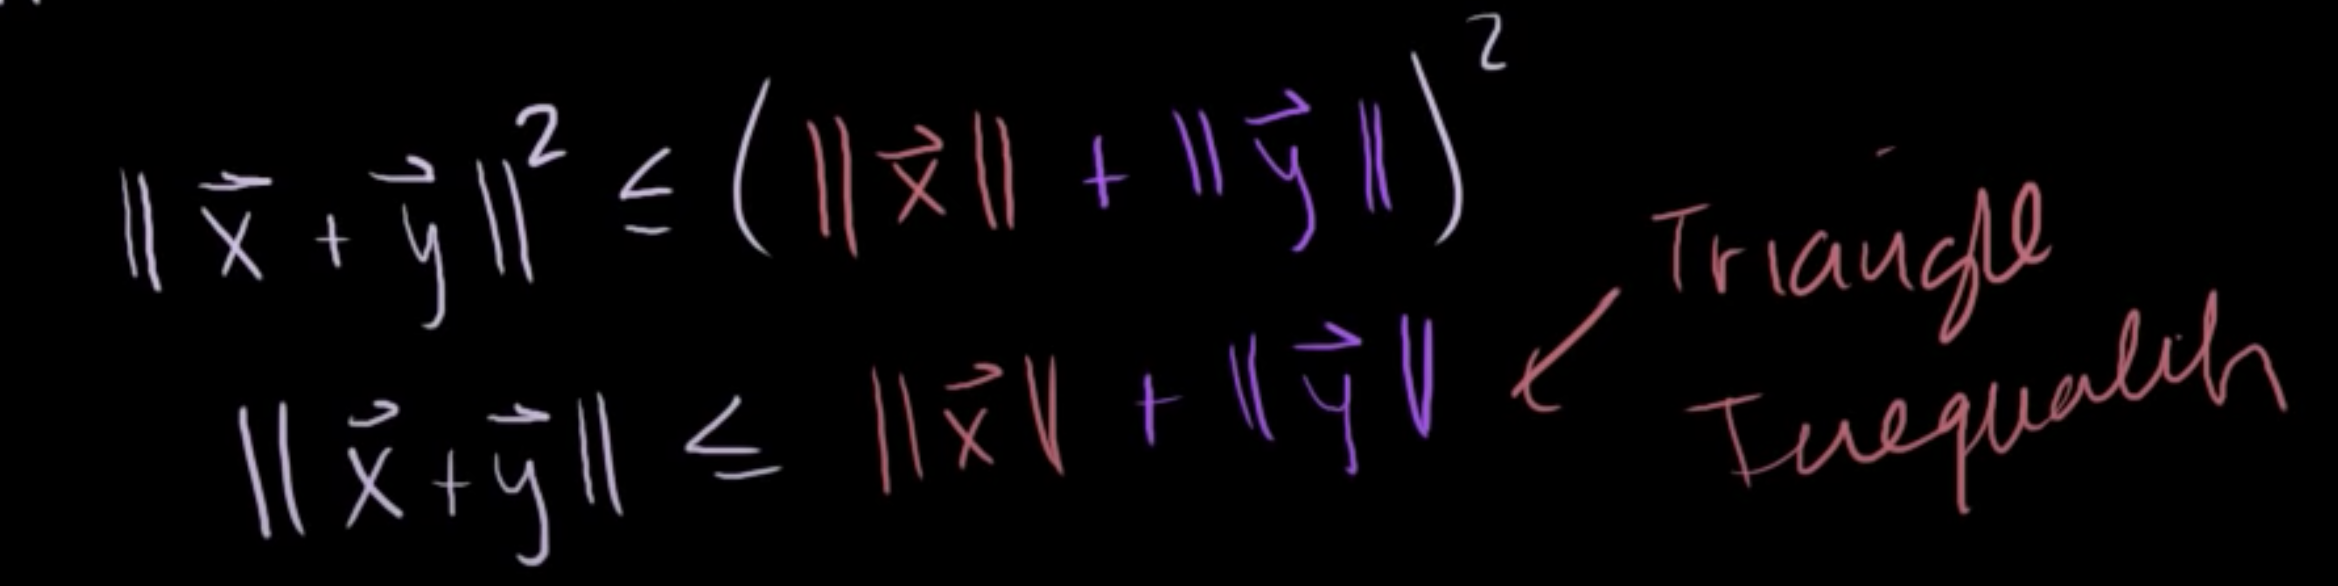 ‖x⃗ + y⃗‖² ≤ (‖x⃗‖ + ‖y⃗‖)²
‖x⃗ + y⃗‖ ≤ ‖x⃗‖ + ‖y⃗‖ ↙ Triangle
Inequality